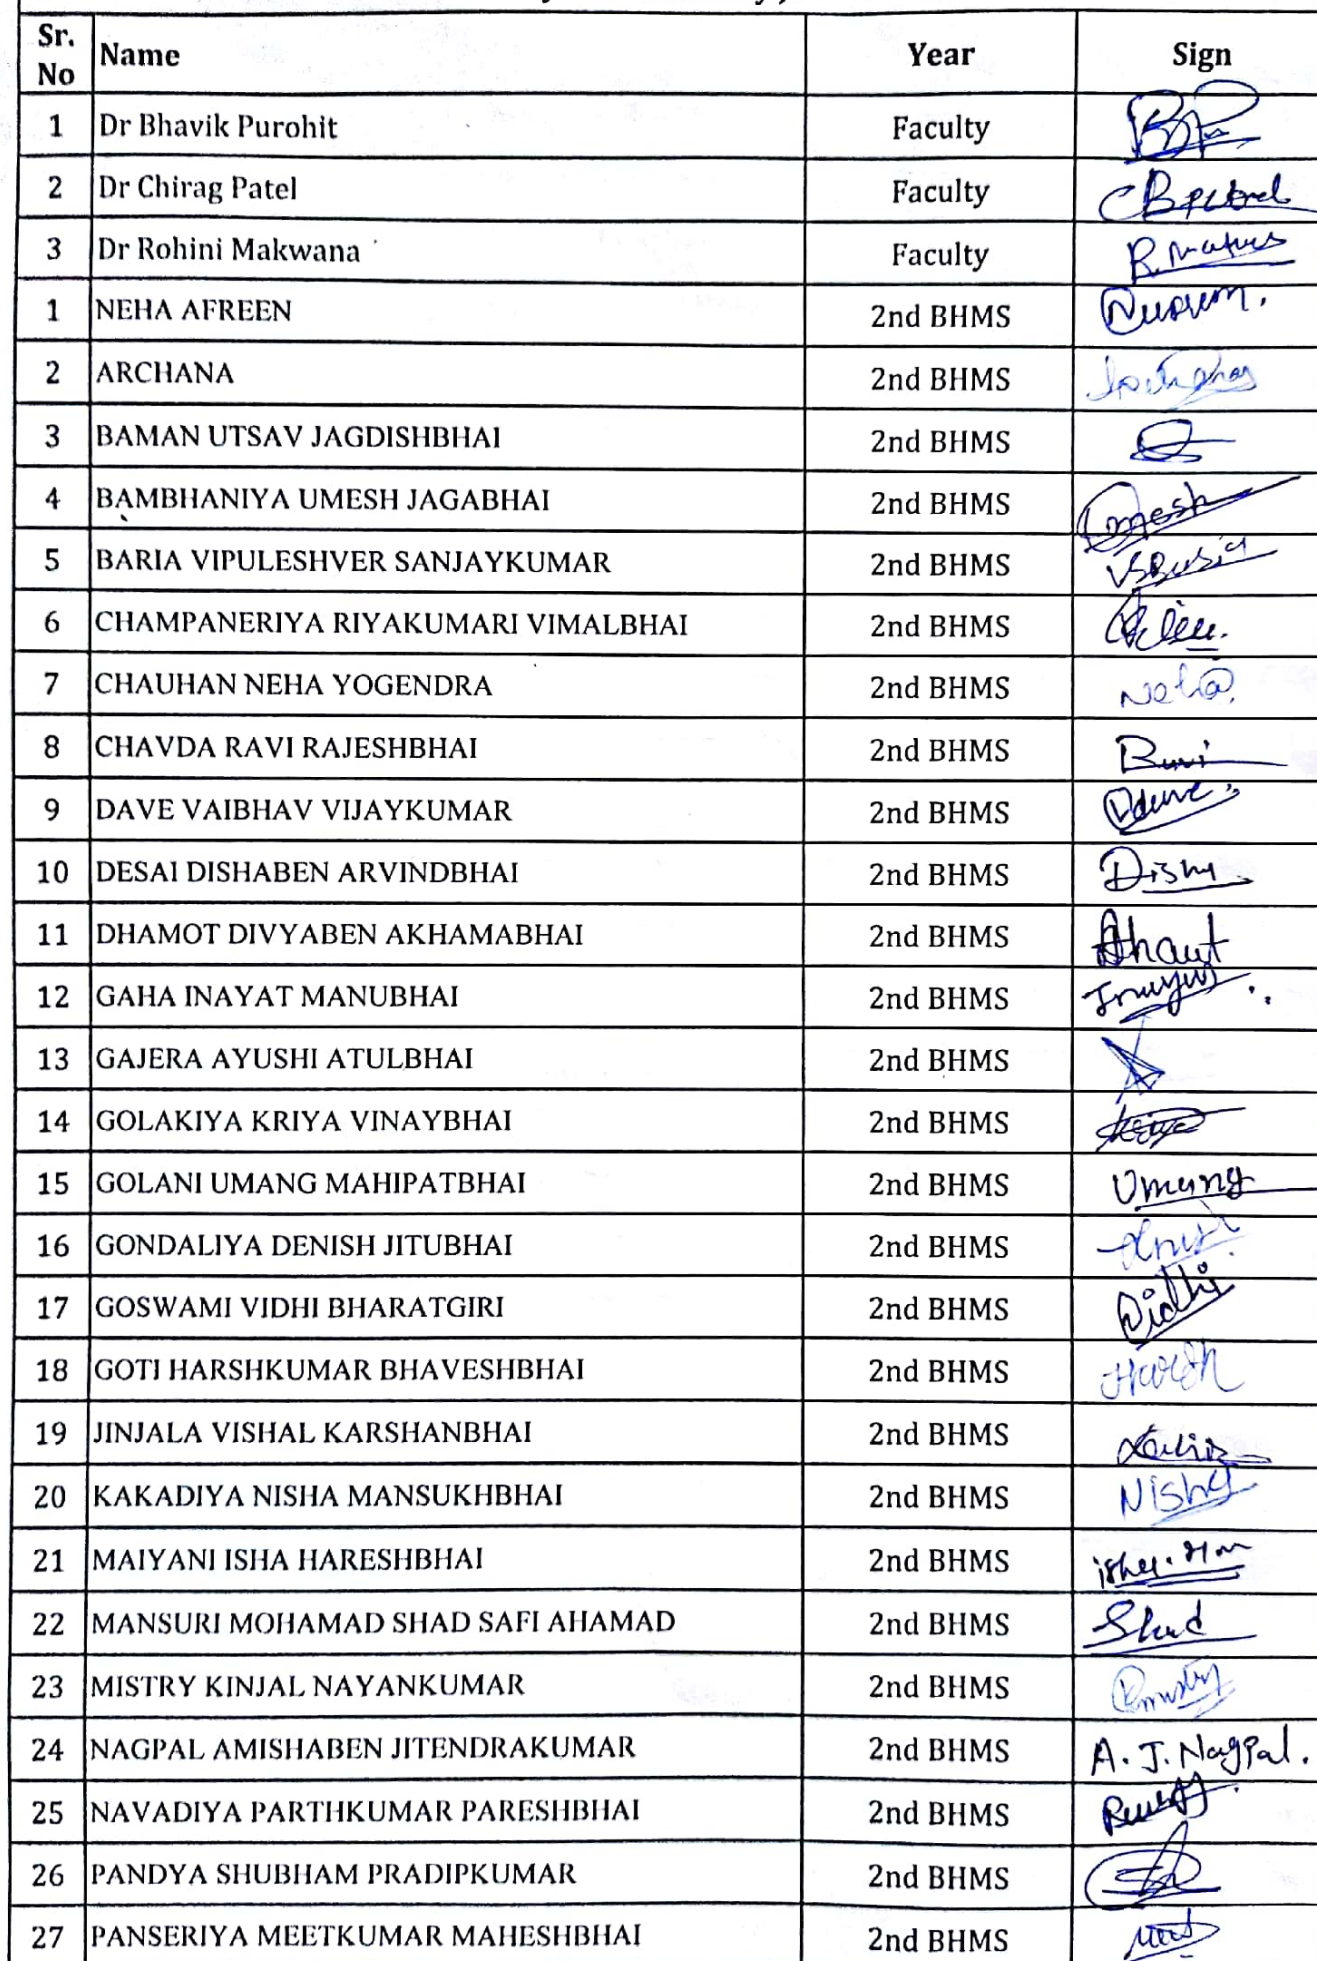 Sr. No Name Year Sign
1 Dr Bhavik Purohit Faculty
2 Dr Chirag Patel Faculty CBPatel
3 Dr Rohini Makwana Faculty
1 NEHA AFREEN 2nd BHMS
2 ARCHANA 2nd BHMS
3 BAMAN UTSAV JAGDISHBHAI 2nd BHMS
4 BAMBHANIYA UMESH JAGABHAI 2nd BHMS Umesh
5 BARIA VIPULESHVER SANJAYKUMAR 2nd BHMS
6 CHAMPANERIYA RIYAKUMARI VIMALBHAI 2nd BHMS
7 CHAUHAN NEHA YOGENDRA 2nd BHMS Neha
8 CHAVDA RAVI RAJESHBHAI 2nd BHMS Ravi
9 DAVE VAIBHAV VIJAYKUMAR 2nd BHMS
10 DESAI DISHABEN ARVINDBHAI 2nd BHMS Disha
11 DHAMOT DIVYABEN AKHAMABHAI 2nd BHMS
12 GAHA INAYAT MANUBHAI 2nd BHMS
13 GAJERA AYUSHI ATULBHAI 2nd BHMS
14 GOLAKIYA KRIYA VINAYBHAI 2nd BHMS
15 GOLANI UMANG MAHIPATBHAI 2nd BHMS Umang
16 GONDALIYA DENISH JITUBHAI 2nd BHMS
17 GOSWAMI VIDHI BHARATGIRI 2nd BHMS Vidhi
18 GOTI HARSHKUMAR BHAVESHBHAI 2nd BHMS Harsh
19 JINJALA VISHAL KARSHANBHAI 2nd BHMS
20 KAKADIYA NISHA MANSUKHBHAI 2nd BHMS Nisha
21 MAIYANI ISHA HARESHBHAI 2nd BHMS
22 MANSURI MOHAMAD SHAD SAFI AHAMAD 2nd BHMS Shad
23 MISTRY KINJAL NAYANKUMAR 2nd BHMS
24 NAGPAL AMISHABEN JITENDRAKUMAR 2nd BHMS A. J. Nagpal.
25 NAVADIYA PARTHKUMAR PARESHBHAI 2nd BHMS
26 PANDYA SHUBHAM PRADIPKUMAR 2nd BHMS
27 PANSERIYA MEETKUMAR MAHESHBHAI 2nd BHMS Meet